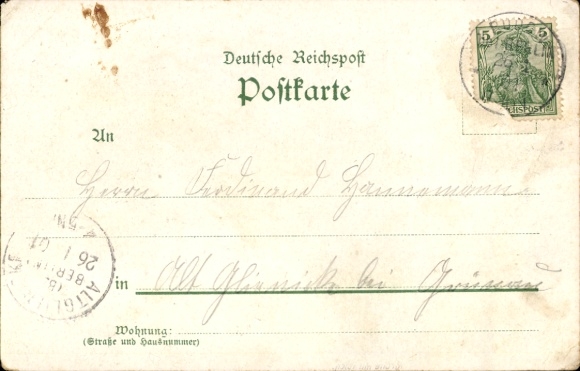 Deutsche Reichspost
Postkarte
5 5
Reichspost
An
Herrn Ferdinand Hannemann
in Alt Glienicke bei Grünau
ALTGLIENICKE
BERLIN
26 1 01
4-5N.
Wohnung:
(Straße und Hausnummer)